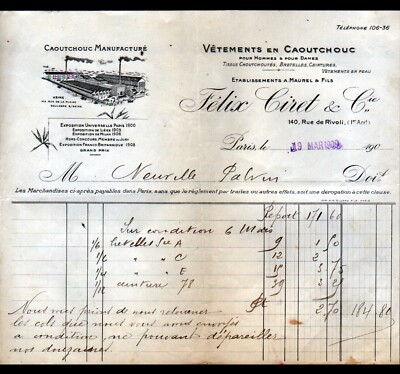 TÉLÉPHONE 106-36
CAOUTCHOUC MANUFACTURÉ
VÊTEMENTS EN CAOUTCHOUC
POUR HOMMES & POUR DAMES
TISSUS CAOUTCHOUTÉS, BRETELLES, CEINTURES,
VÊTEMENTS EN PEAU
ETABLISSEMENTS A. MAUREL & FILS
Félix Ciret & Cie
140, Rue de Rivoli, (1er Arrt)
USINE
RUE DE LA PLAINE
EXPOSITION UNIVERSELLE PARIS 1900
EXPOSITION DE LIÈGE 1905
EXPOSITION DE MILAN 1906
HORS-CONCOURS, MEMBRE DU JURY
EXPOSITION FRANCO-BRITANNIQUE 1908
GRAND PRIX
Paris, le 19 MAR 1909 190
M. Neuville Doit
Les Marchandises ci-après payables dans Paris, sans que le règlement par traites ou autres effets, soit une dérogation à cette clause.
Report 171 60
Sur condition 6 Mars
1/6 A 9 1 50
1/6 " " C 12 2
1/6 " " E 15
1/12 ceinture 78 39
2.70 184.80
Nous vous prions de nous retourner
les cols que nous vous avons envoyés
à condition ne pouvant dépareiller
nos douzaines.